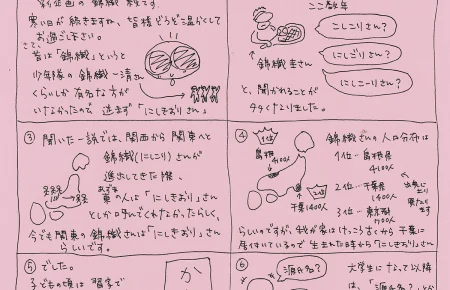 錦織
寒い日が続きますね、皆様どうぞ温かくして
お過ごし下さい。
さて、
昔は「錦織」というと
少年隊の錦織一清さん
くらいしか有名な方が
いなかったので、迷わず「にしきおりさん」
ここ数年
こしこりさん?
にしごりさん?
にしこーりさん?
錦織圭さん
と、聞かれることが
多くなりました。
③ 聞いた一説では、関西から関東へと
錦織(にしこり)さんが
進出してきた際、
東の人は「にしきおり」さん
あずま
としか呼んでくれなかったらしく、
今でも関東の錦織さんは「にしきおり」さん
らしいです。
④ 1位
錦織さんの人口分布は
1位…島根県
4100人
島根
4100人
2位…千葉県
1400人
2位
千葉1400人
3位…東京都
らしいのですが、我が家はけっこう古くから千葉に
居付いているので生まれた時から「にしきおり」さん
⑤ でした。
子どもの頃は習字で
か
⑥
源氏名?
大学生になって以降
は、「源氏名?」とか